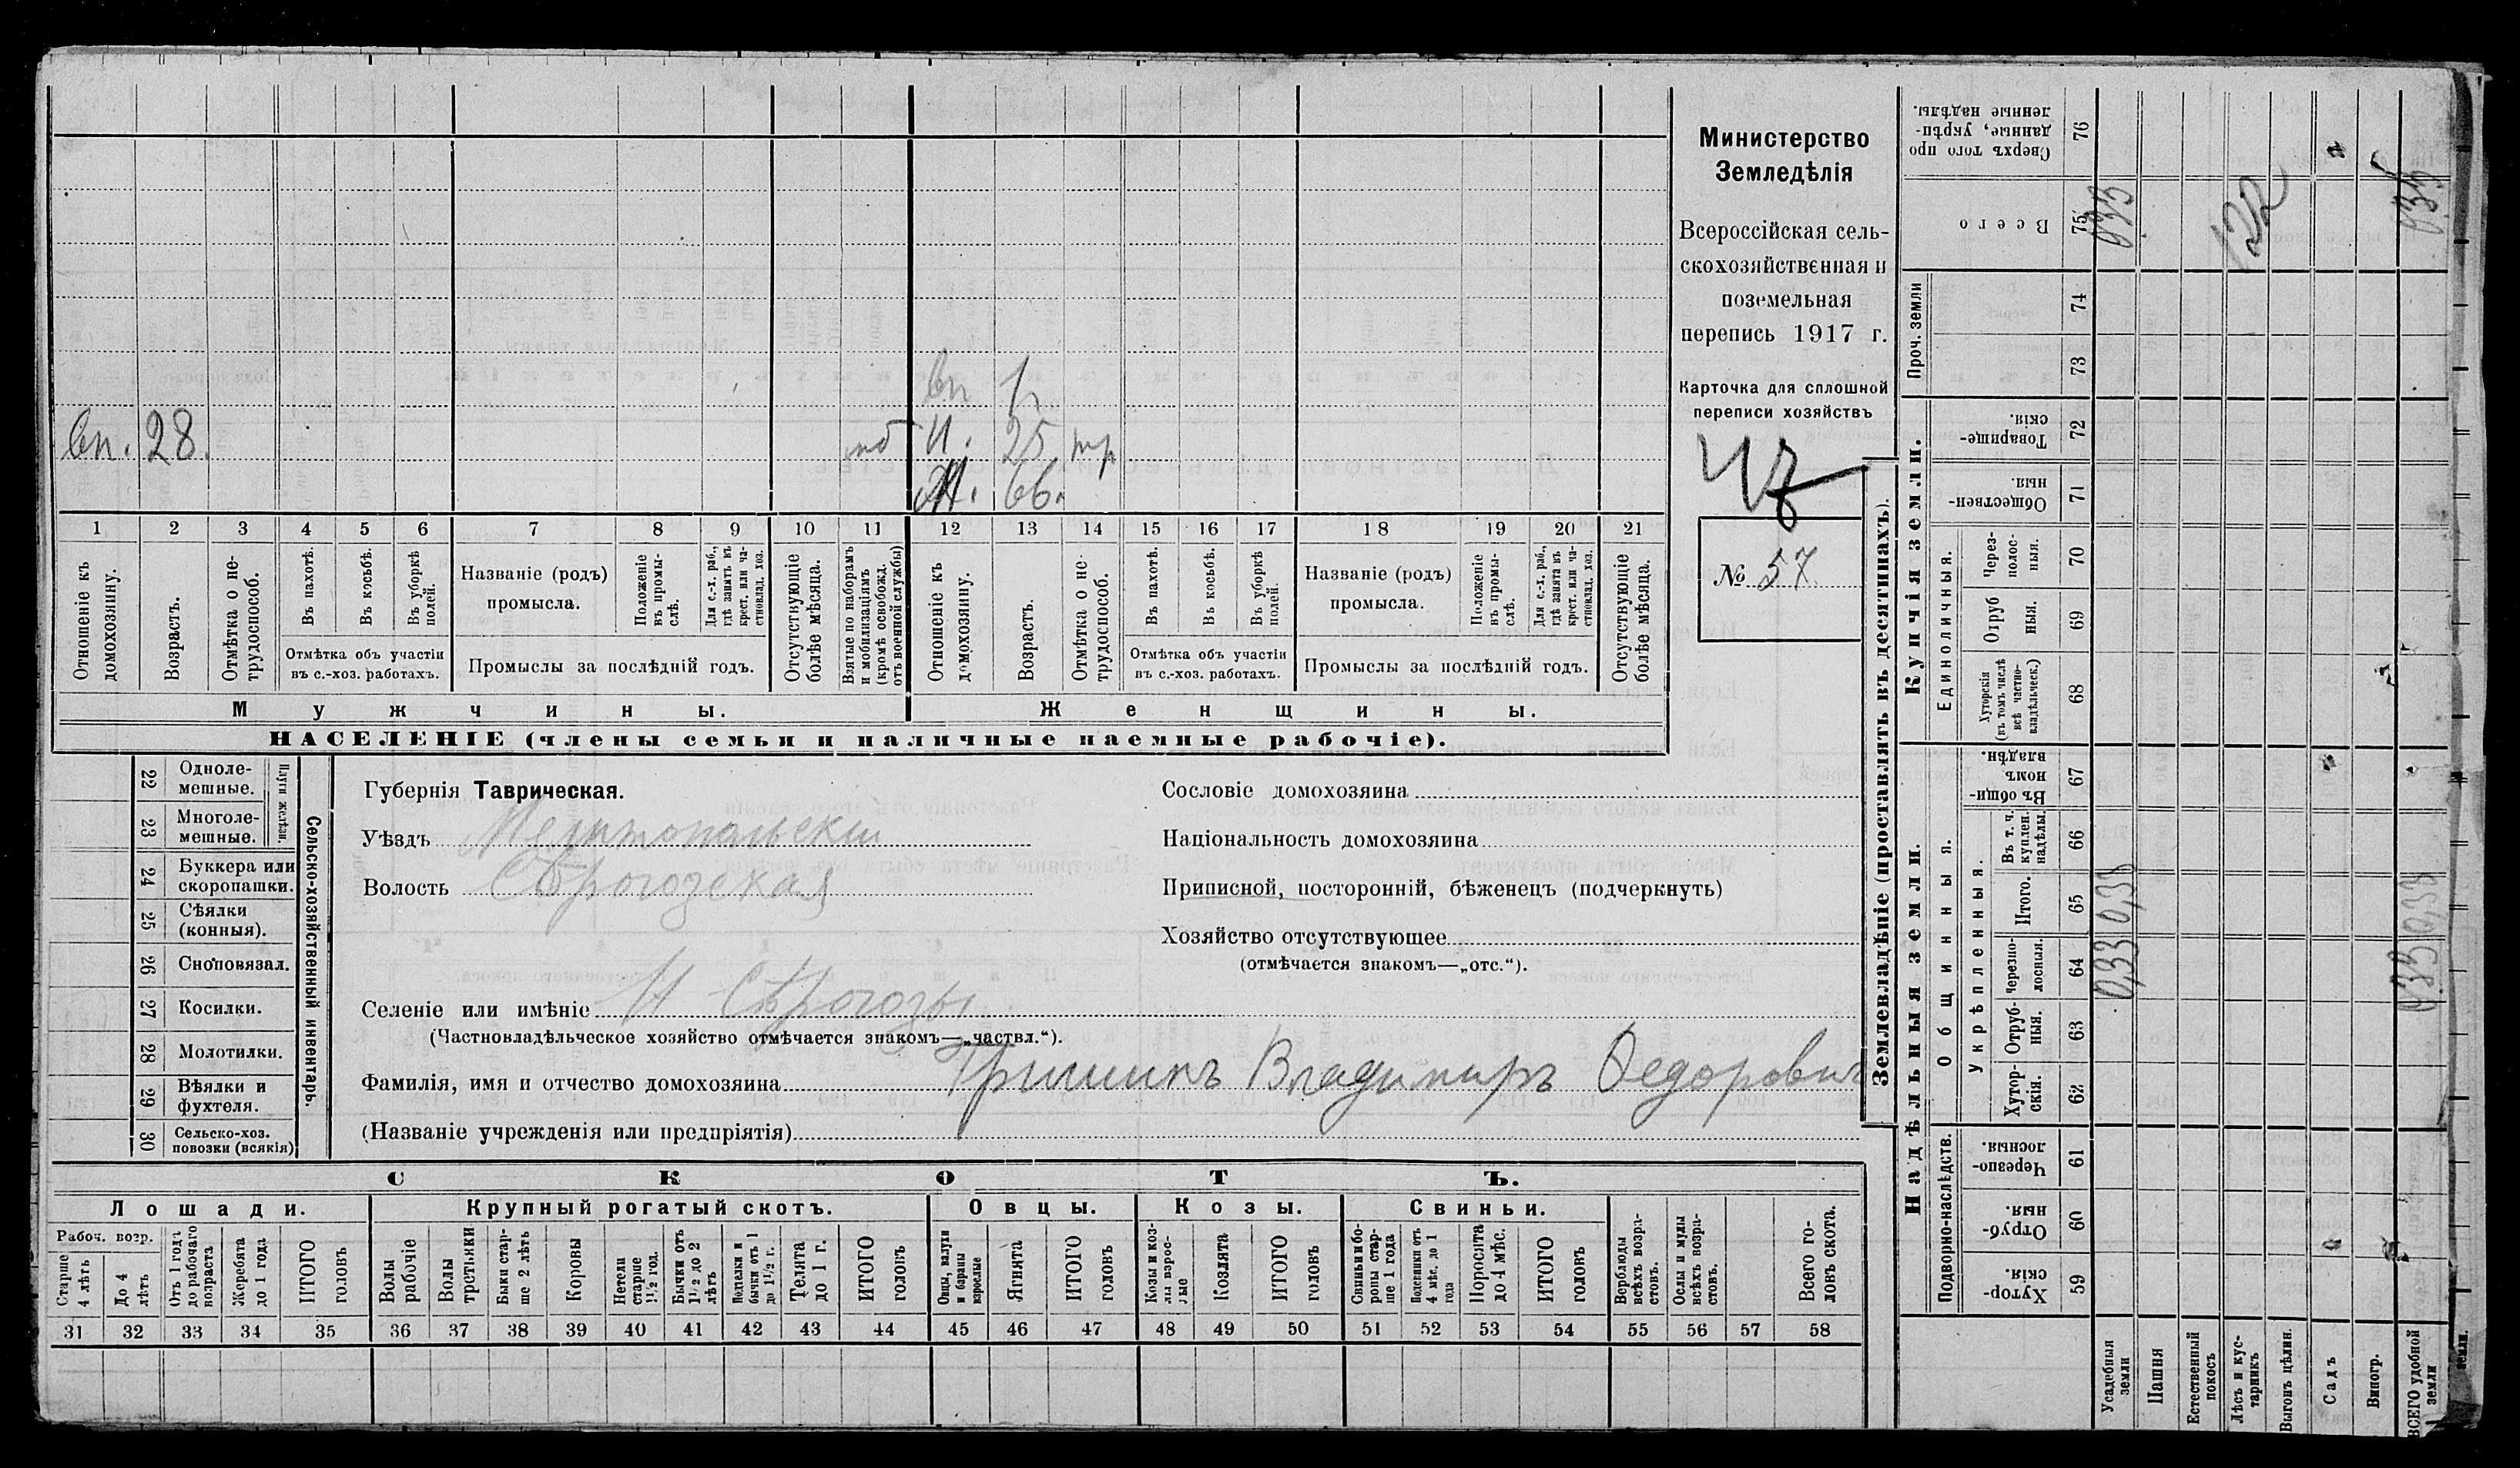 Министерство
Земледѣлія
Всероссійская сель-
скохозяйственная и
поземельная
перепись 1917 г.
Карточка для сплошной
переписи хозяйствъ
№ 57
вп 1
вп. 28. И. 25 тр
66.
1 2 3 4 5 6 7 8 9 10 11 12 13 14 15 16 17 18 19 20 21
Отношеніе къ домохозяину.
Возрастъ.
Отмѣтка о не-трудоспособ.
Въ пахотѣ.
Въ косьбѣ.
Въ уборкѣ полей.
Отмѣтка объ участіи
въ с.-хоз. работахъ.
Названіе (родъ)
промысла.
Положеніе въ промы-слѣ.
Для с.-х. раб., гдѣ занятъ въ крест. или ча-стновлад. хоз.
Промыслы за послѣдній годъ.
Отсутствующіе болѣе мѣсяца.
Взятые по наборамъ и мобилизаціямъ (кромѣ освобожд. отъ военной службы)
Отношеніе къ домохозяину.
Возрастъ.
Отмѣтка о не-трудоспособ.
Въ пахотѣ.
Въ косьбѣ.
Въ уборкѣ полей.
Отмѣтка объ участіи
въ с.-хоз. работахъ.
Названіе (родъ)
промысла.
Положеніе въ промы-слѣ.
Для с.-х. раб., гдѣ занята въ крест. или ча-стновлад. хоз.
Промыслы за послѣдній годъ.
Отсутствующіе болѣе мѣсяца.
Мужчины.
Женщины.
НАСЕЛЕНІЕ (члены семьи и наличные наемные рабочіе).
Сельско-хозяйственный инвентарь.
Плуги желѣзн.
22 Одноле-мешные.
23 Многоле-мешные.
24 Буккера или скоропашки.
25 Сѣялки (конныя).
26 Сноповязал.
27 Косилки.
28 Молотилки.
29 Вѣялки и фухтеля.
30 Сельско-хоз. повозки (всякія)
Губернія Таврическая.
Уѣздъ Мелитопольскій
Волость Сѣрогозская
Селеніе или имѣніе Н Сѣрогозы
(Частновладѣльческое хозяйство отмѣчается знакомъ—„частвл.“).
Фамилія, имя и отчество домохозяина Гришинъ Владимиръ Федорович
(Названіе учрежденія или предпріятія)
Сословіе домохозяина
Національность домохозяина
Приписной, посторонній, бѣженецъ (подчеркнуть)
Хозяйство отсутствующее
(отмѣчается знакомъ—„отс.“).
СКОТЪ.
Лошади.
Крупный рогатый скотъ.
Овцы.
Козы.
Свиньи.
Рабоч. возр.
Старше 4 лѣтъ
До 4 лѣтъ
Отъ 1 годъ до рабочаго возраста
Жеребята до 1 года
ИТОГО головъ
Волы рабочіе
Волы третьяки
Быки стар-ше 2 лѣтъ
Коровы
Нетели старше 1½ год.
Бычки отъ 1½ до 2 лѣтъ
Подтелки и бычки отъ 1 до 1½ г.
Телята до 1 г.
ИТОГО головъ
Овцы, валухи и бараны взрослые
Ягнята
ИТОГО головъ
Козы и коз-лы взрос-лые
Козлята
ИТОГО головъ
Свиньи и бо-ровы стар-ше 1 года
Подсвинки отъ 4 мѣс. до 1 года
Поросята до 4 мѣс.
ИТОГО головъ
Верблюды всѣхъ возра-стовъ.
Ослы и мулы всѣхъ возра-стовъ.
Всего го-ловъ скота.
31 32 33 34 35 36 37 38 39 40 41 42 43 44 45 46 47 48 49 50 51 52 53 54 55 56 57 58
Землевладѣніе (проставлять въ десятинахъ).
Надѣльныя земли.
Подворно-наслѣдств.
59 Хутор-скія.
60 Отруб-ныя.
61 Черезпо-лосныя.
Общинныя.
Укрѣпленныя.
62 Хутор-скія.
63 Отруб-ныя.
64 Черезпо-лосныя.
65 Итого.
66 Въ т. ч. куплен. надѣлы.
67 Въ общин-номъ владѣн.
Купчія земли.
Единоличныя.
68 Хуторскія (въ томъ числѣ всѣ частно-владѣльческ.)
69 Отруб ныя.
70 Через-полос-ныя.
71 Обществен-ныя.
72 Товарище-скія
Проч. земли
73
74
75 Всего
76 Сверхъ того про данные, укрѣп-ленные надѣлы.
Усадебныя земли 033 033 033
Пашня
Естественный покосъ
Лѣсъ и кус-тарникъ
Выгонъ цѣлин.
Садъ
Виногр.
ВСЕГО удобной земли 033 033 033
земли.
122